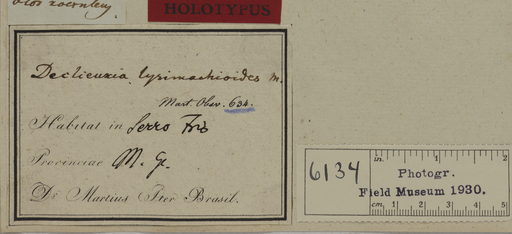 HOLOTYPUS
Declieuxia lysimachioides m.
Mart. Obsv. 634.
Habitat in Serro Frio
Provinciae M. G.
Dr Martius Iter Brasil.
6134
in. 1 2
Photogr.
Field Museum 1930.
cm. 1 2 3 4 5